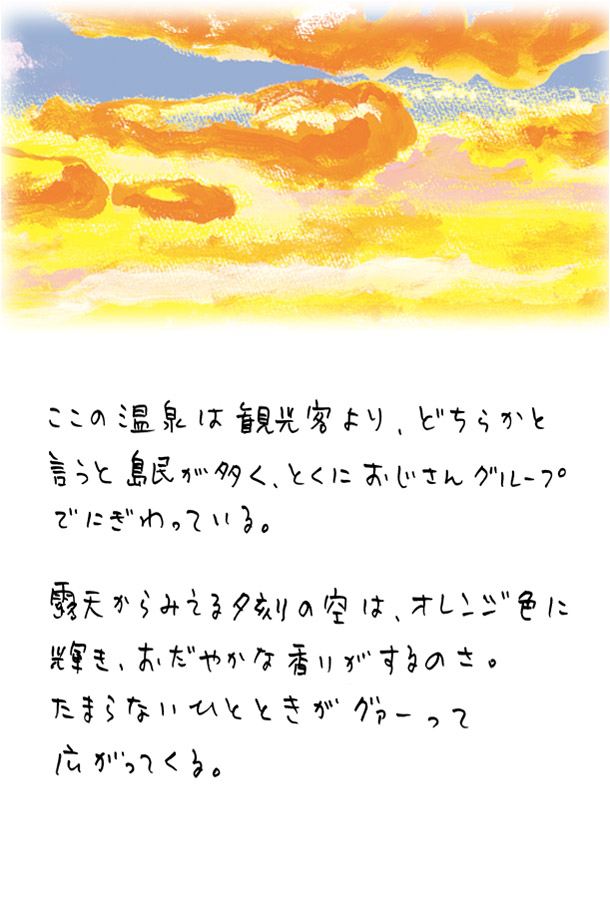 ここの温泉は観光客より、どちらかと
言うと島民が多く、とくにおじさんグループ
でにぎわっている。
露天からみえる夕刻の空は、オレンジ色に
輝き、おだやかな香りがするのさ。
たまらないひとときがグァーって
広がってくる。